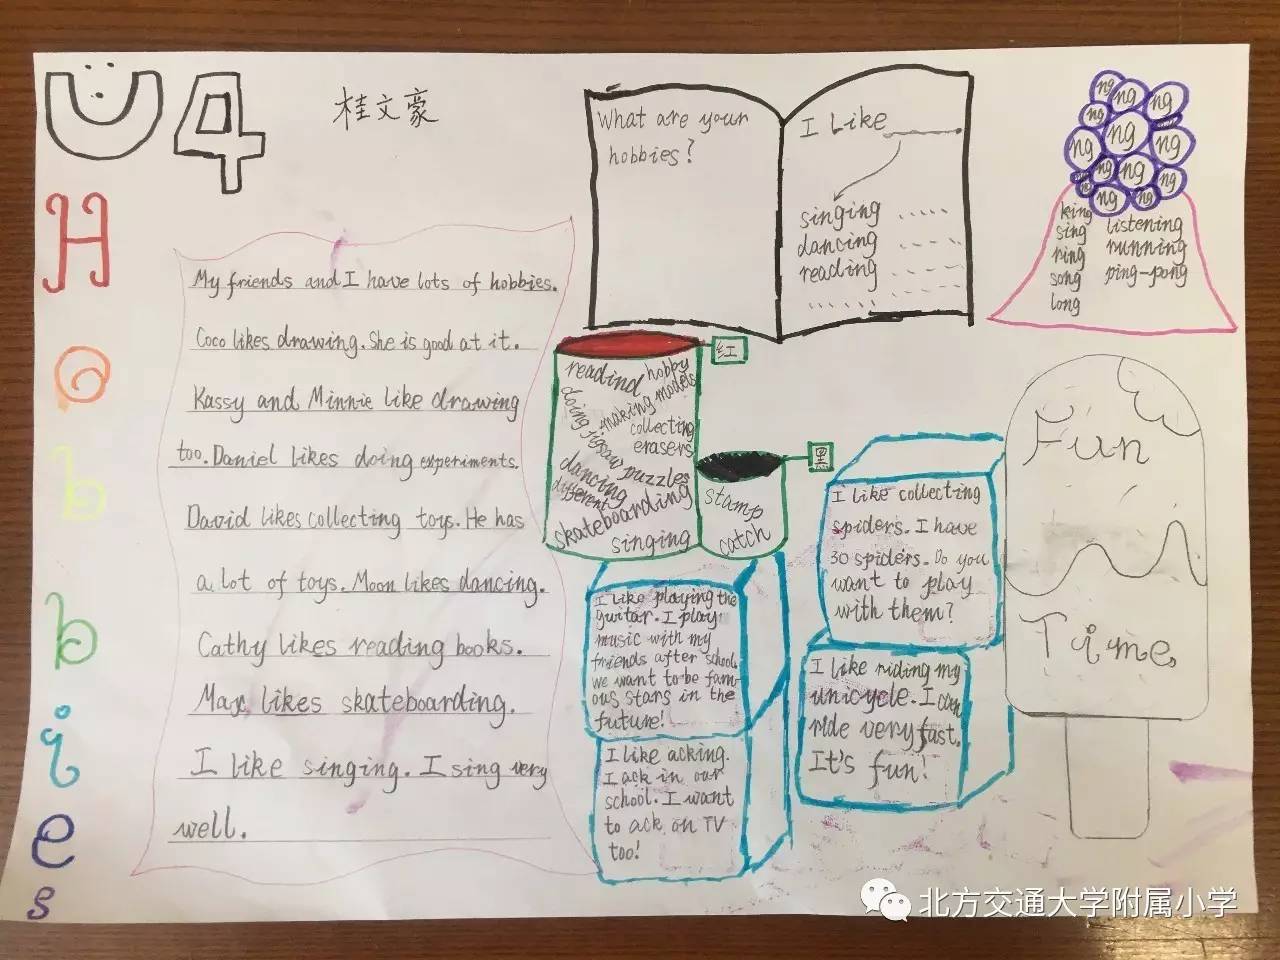 U4
桂文豪
Hobbies
My friends and I have lots of hobbies.
Coco likes drawing. She is good at it.
Kassy and Minnie like drawing
too. Daniel likes doing experiments.
David likes collecting toys. He has
a lot of toys. Moon likes dancing.
Cathy likes reading books.
Max likes skateboarding.
I like singing. I sing very
well.
What are your
hobbies?
I Like
singing
dancing
reading
ng ng ng
ng ng
ng ng ng
ng ng ng
ng ng
king
sing
ring
song
long
listening
running
ping-pong
红
readind
hobby
making models
doing jigsaw puzzles
collecting
erasers
dancing
different
skateboarding
singing
黑
stamp
catch
I like collecting
spiders. I have
30 spiders. Do you
want to play
with them?
I like playing the
guitar. I play
music with my
friends after school.
we want to be fam-
ous stars in the
future!
I like riding my
unicycle. I can
ride very fast.
It's fun!
I like acking.
I ack in our
school. I want
to ack on TV
too!
Fun
Time
北方交通大学附属小学